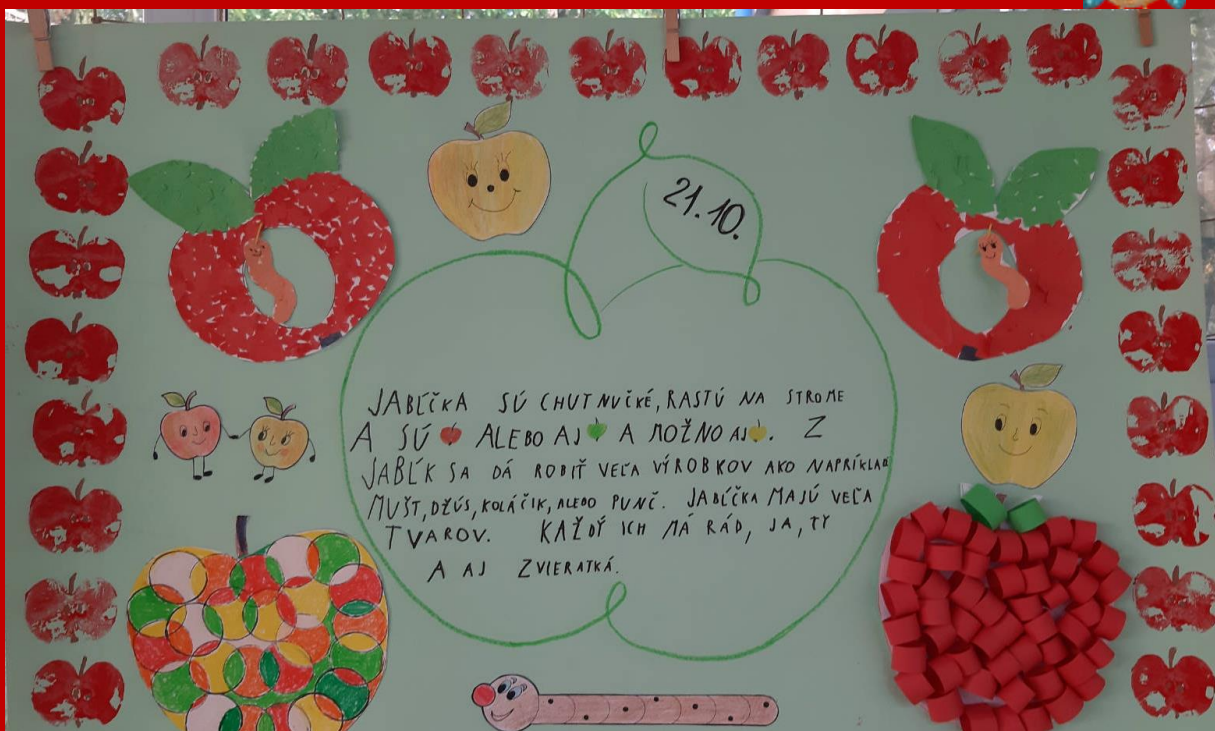 21.10.
JABĹČKA SÚ CHUTNUČKÉ, RASTÚ NA STROME
A SÚ ALEBO AJ A MOŽNO AJ. Z
JABĹK SA DÁ ROBIŤ VEĽA VÝROBKOV AKO NAPRÍKLAD
MUŠT, DŽÚS, KOLÁČIK, ALEBO PUNČ. JABĹČKA MAJÚ VEĽA
TVAROV. KAŽDÝ ICH MÁ RÁD, JA, TY
A AJ ZVIERATKÁ.